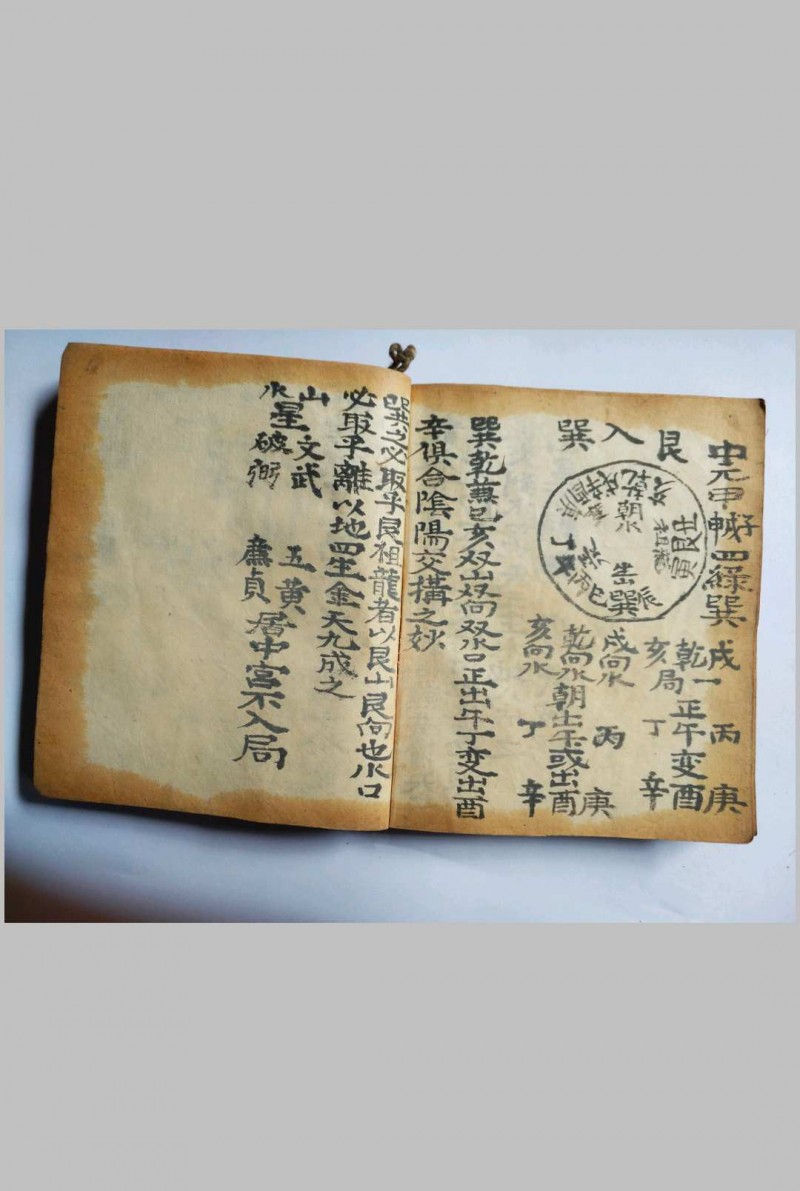 中元甲子四綠巽
艮入巽
戌 丙 庚
乾一局正午变酉
亥 丁 辛
丑艮寅
朝水
辰巽巳
戌向水 丙 庚
乾向水朝出午或出酉
亥向水 丁 辛
巽乾兼巳亥双山双向双水口正出午丁变出酉
辛俱合陰陽交搆之妙
巽之必取乎艮祖龍者以艮山艮向也水口
必取乎離以地四生金天九成之
山 文武
星
水 破弼
五黄
廉貞 居中宮不入局